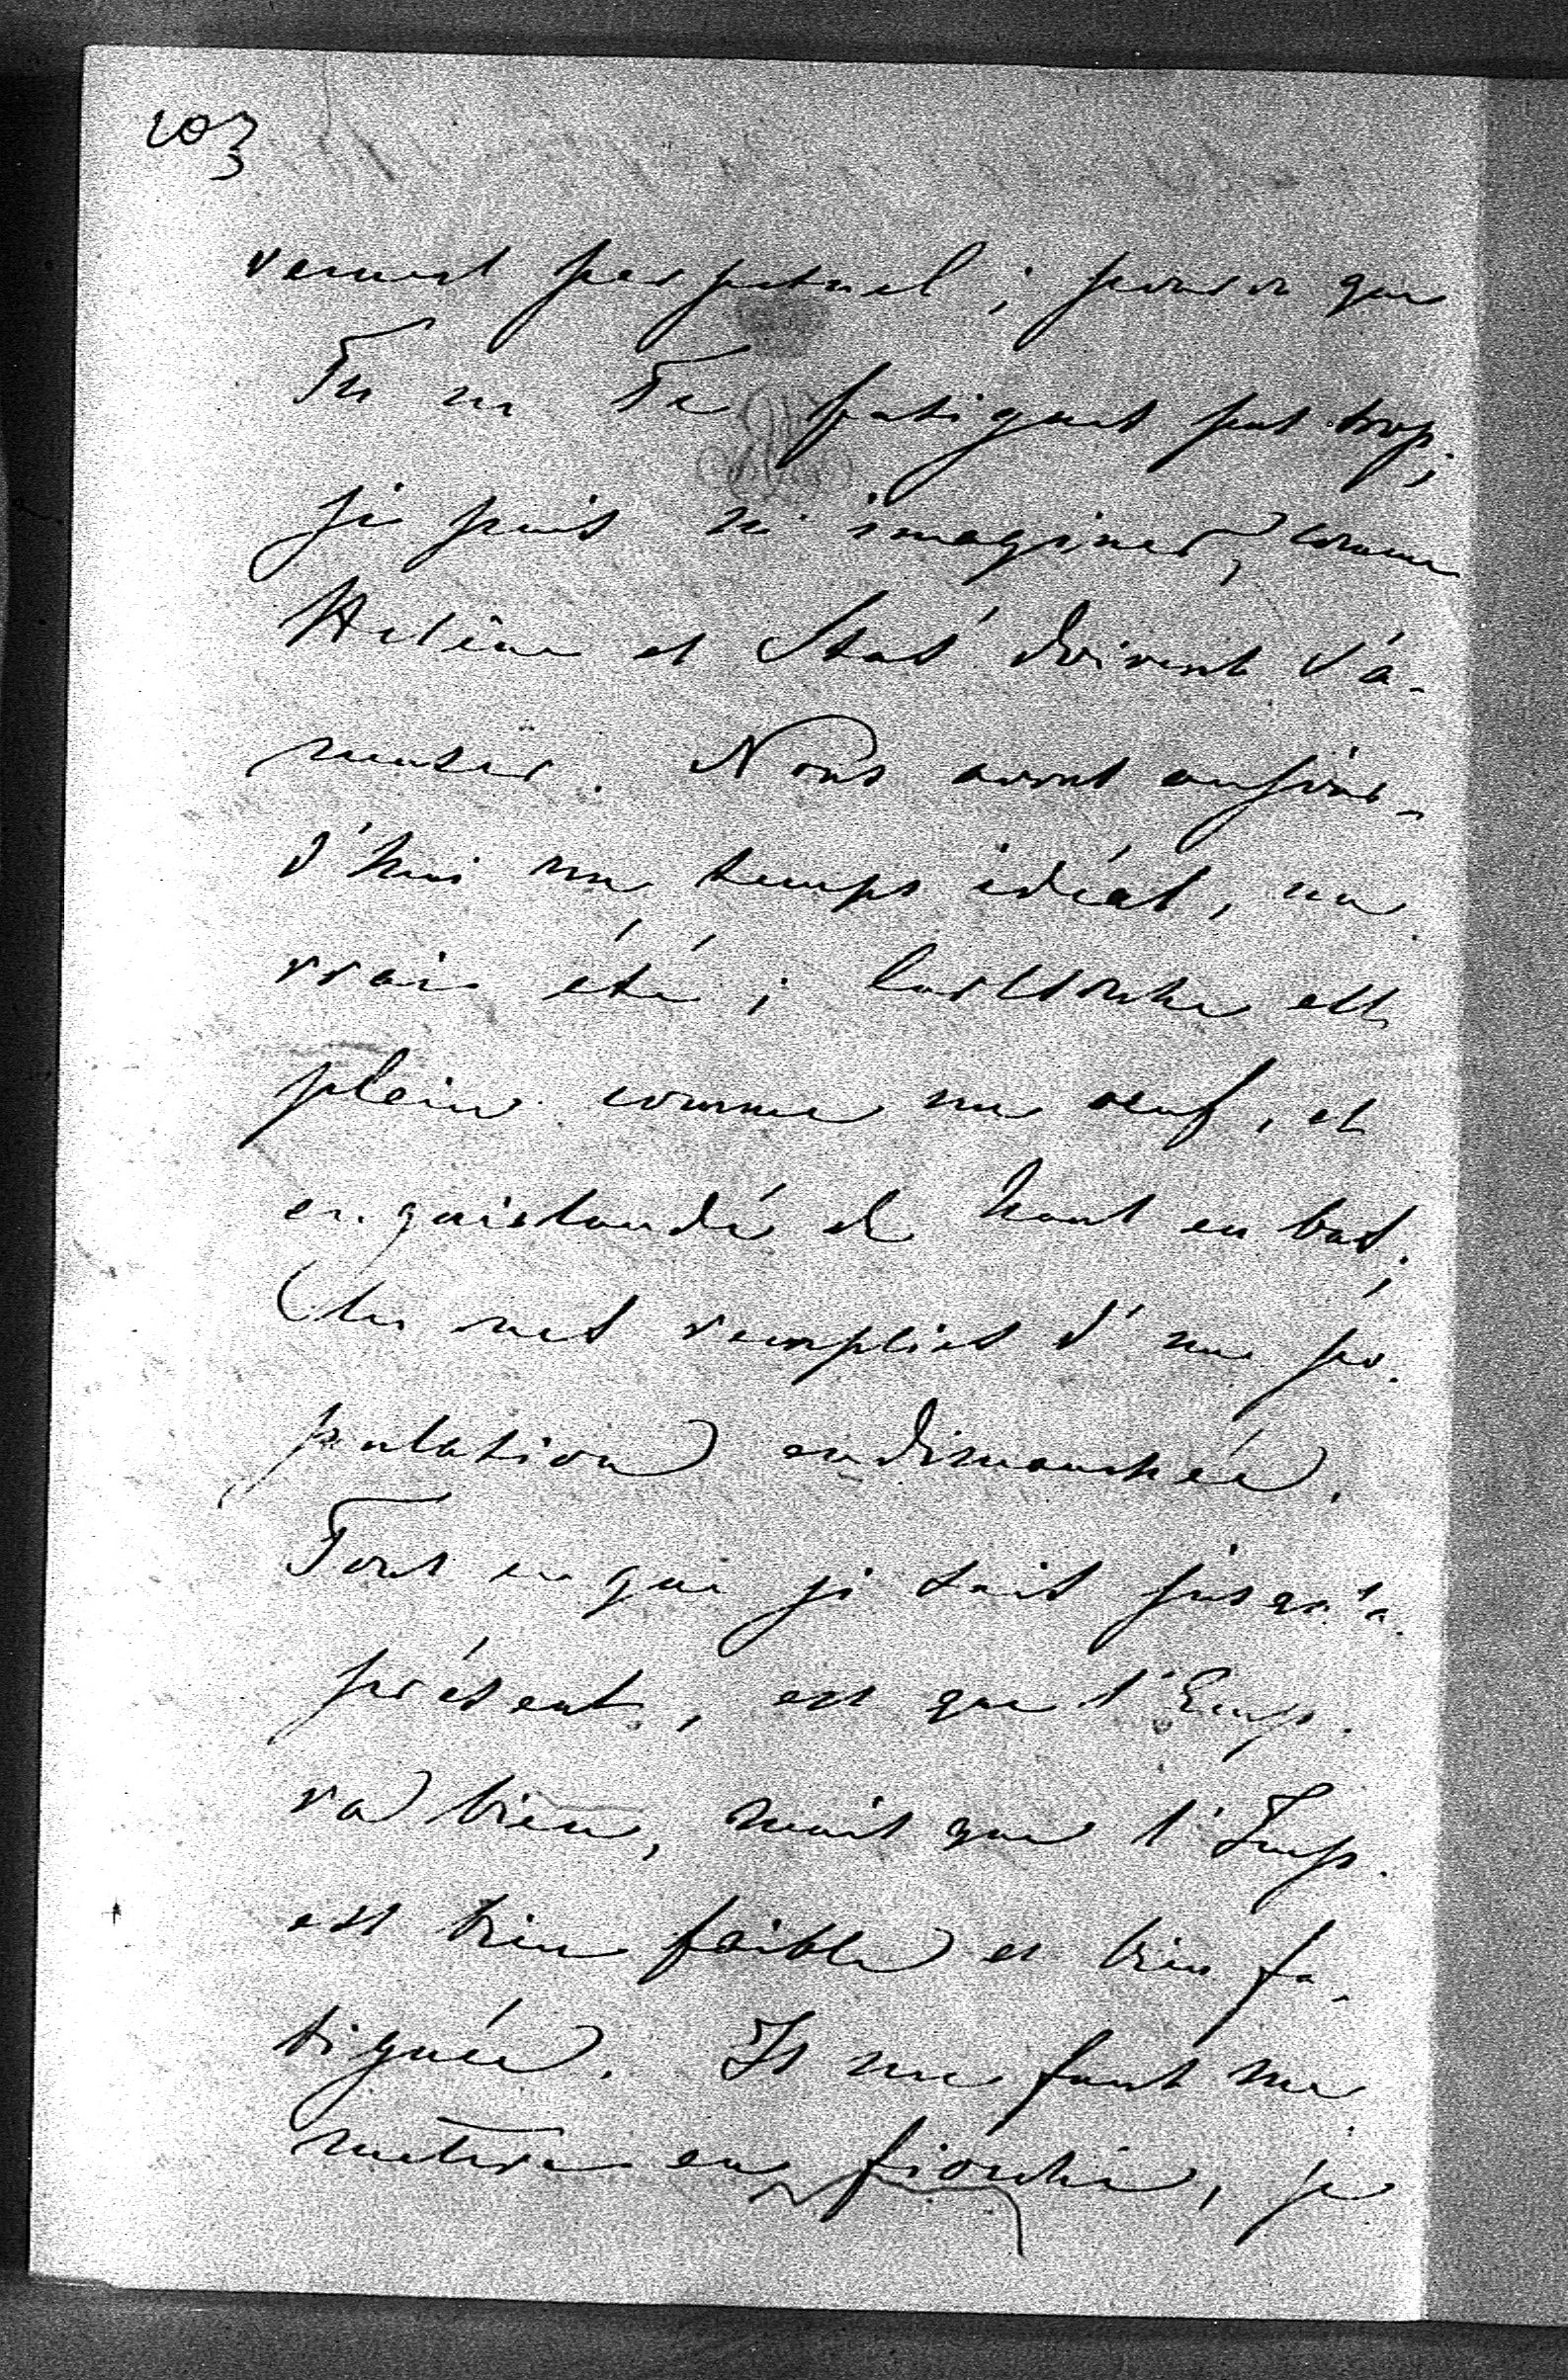 103
vement perpetuel; pourvu que
Tu ne Te fatigues pas trop;
je puis m'imaginer, comme
Helène et Stas doivent s'a-
muser. Nous avons aujour-
d'hui un temps idéal, un
vrai été; Carlsruhe est
plein comme un oeuf, et
enguirlandé de haut en bas;
les rues remplies d'une po-
pulation endimanchée.
Tout ce que je sais jusqu'à
présent, est que l'Emp.
va bien, mais que l'Imp.
est bien faible et bien fa-
tiguée. Il me faut me
mettre en fiocchi, je